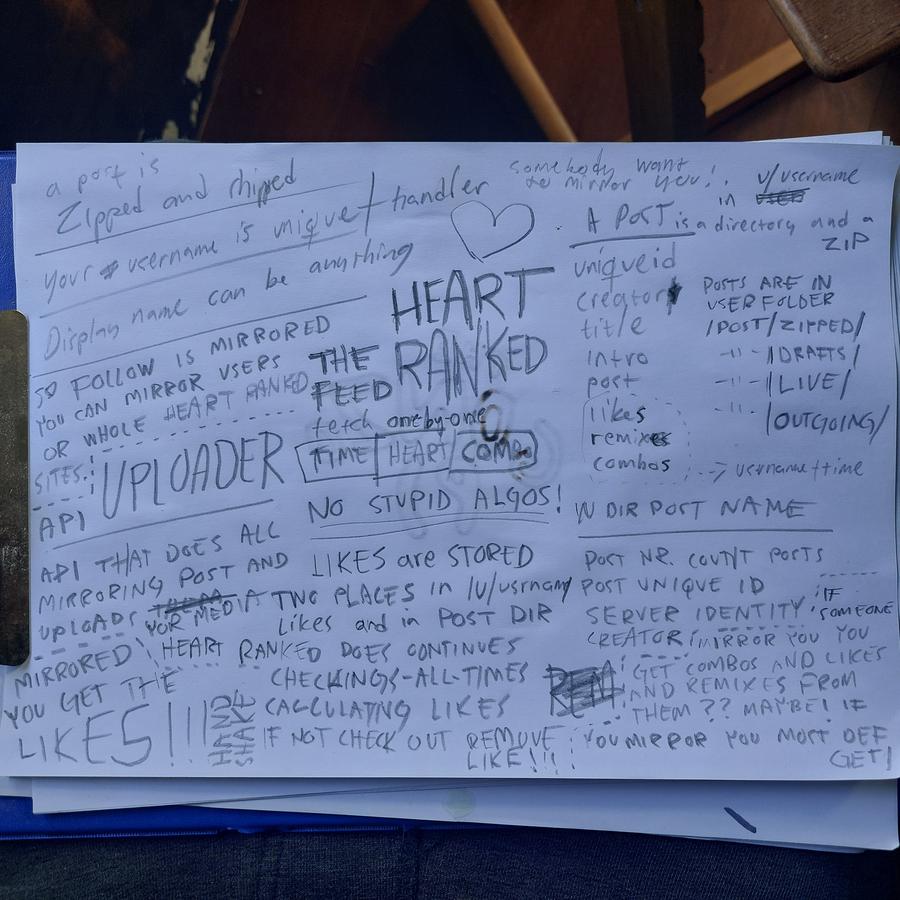 a post is
Zipped and shipped
Your username is unique / handler
Display name can be anything
FOLLOW IS MIRRORED
YOU CAN MIRROR USERS
OR WHOLE HEART RANKED
SITES.
UPLOADER
API
API THAT DOES ALL
MIRRORING POST AND
UPLOADS
YOR MEDIA
MIRRORED
YOU GET THE
LIKES!!!
HAND
SHAKE
HEART
RANKED
THE
FEED
fetch one by one
TIME | HEART | COMBO
NO STUPID ALGOS!
LIKES are STORED
TWO PLACES in /u/usrnamy
Likes and in POST DIR
HEART RANKED DOES CONTINUES
CHECKINGS-ALL-TIMES
CALCULATING LIKES
IF NOT CHECK OUT REMOVE
LIKE!!!
somebody want
to mirror you!
in u/username
A POST is a directory and a
ZIP
uniqueid
creator
title
intro
post
likes
remixes
combos
--> username+time
POSTS ARE IN
USER FOLDER
/POST/ZIPPED/
-11- /DRAFTS/
-11- /LIVE/
-11- /OUTGOING/
DIR POST NAME
POST NR. COUNT POSTS
POST UNIQUE ID
SERVER IDENTITY
CREATOR
IF
SOMEONE
MIRROR YOU YOU
GET COMBOS AND LIKES
AND REMIXES FROM
THEM?? MAYBE! IF
YOU MIRROR YOU MOST DEF
GET!